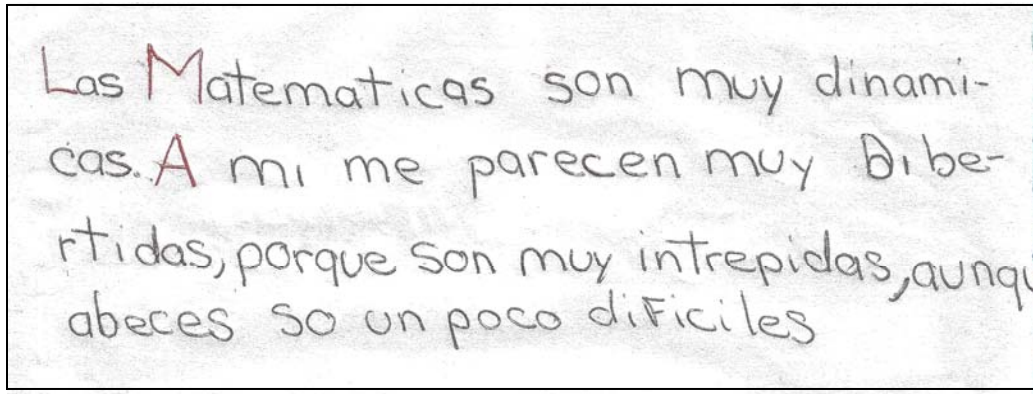 Las Matematicas son muy dinami-
cas. A mi me parecen muy Dibe-
rtidas, porque son muy intrepidas, aunqu
abeces so un poco dificiles